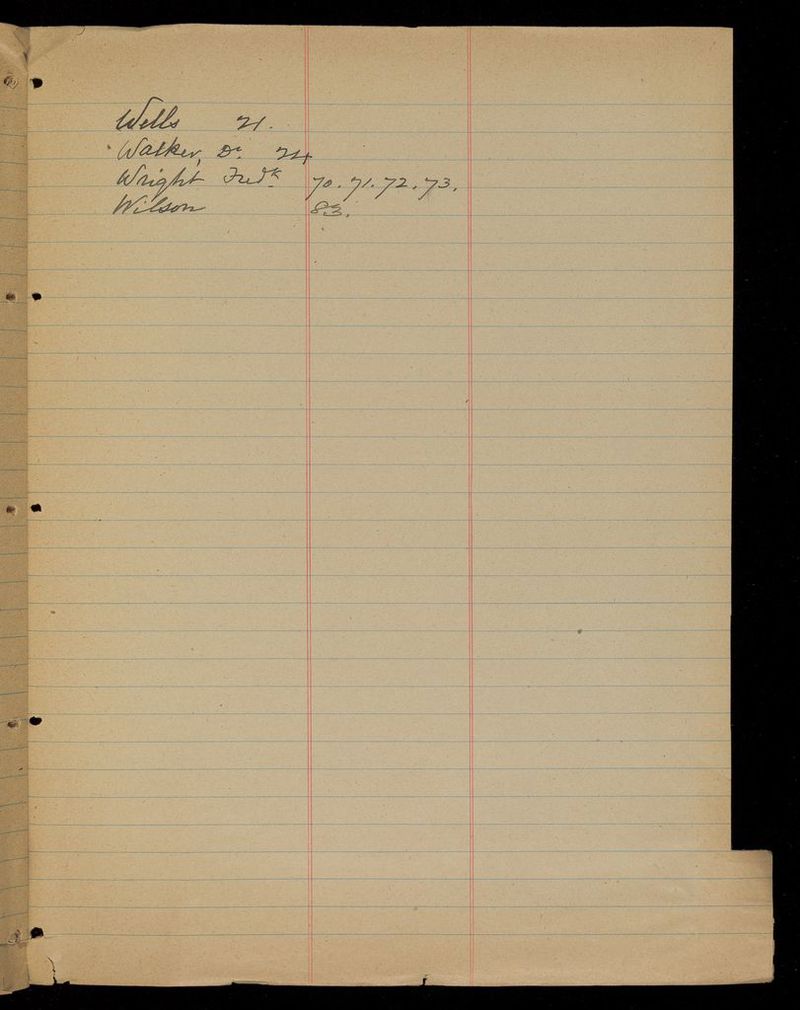 Wells 21.
Walker, Dr. 24
Wright Fredk. 70. 71. 72. 73.
Wilson 83.